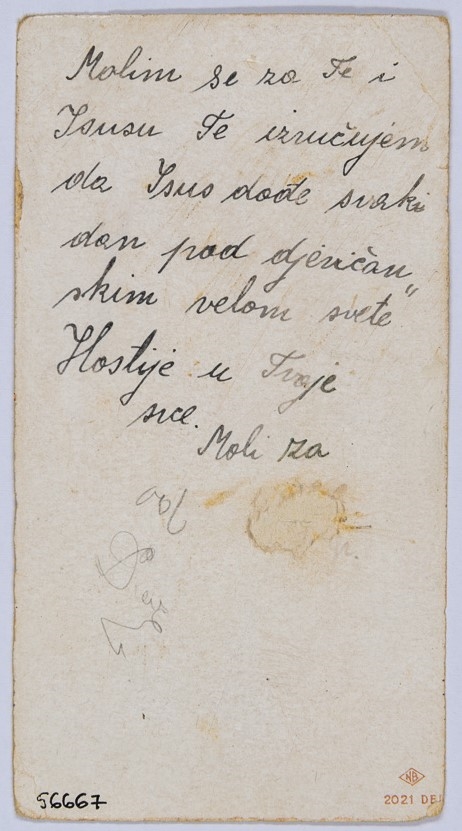 Molim se za Te i
Isusu Te izručujem
da Isus dođe svaki
dan pod djevičan„
skim velom svete
Hostije u Tvoje
srce.
Moli za
56667
NB
2021 DE